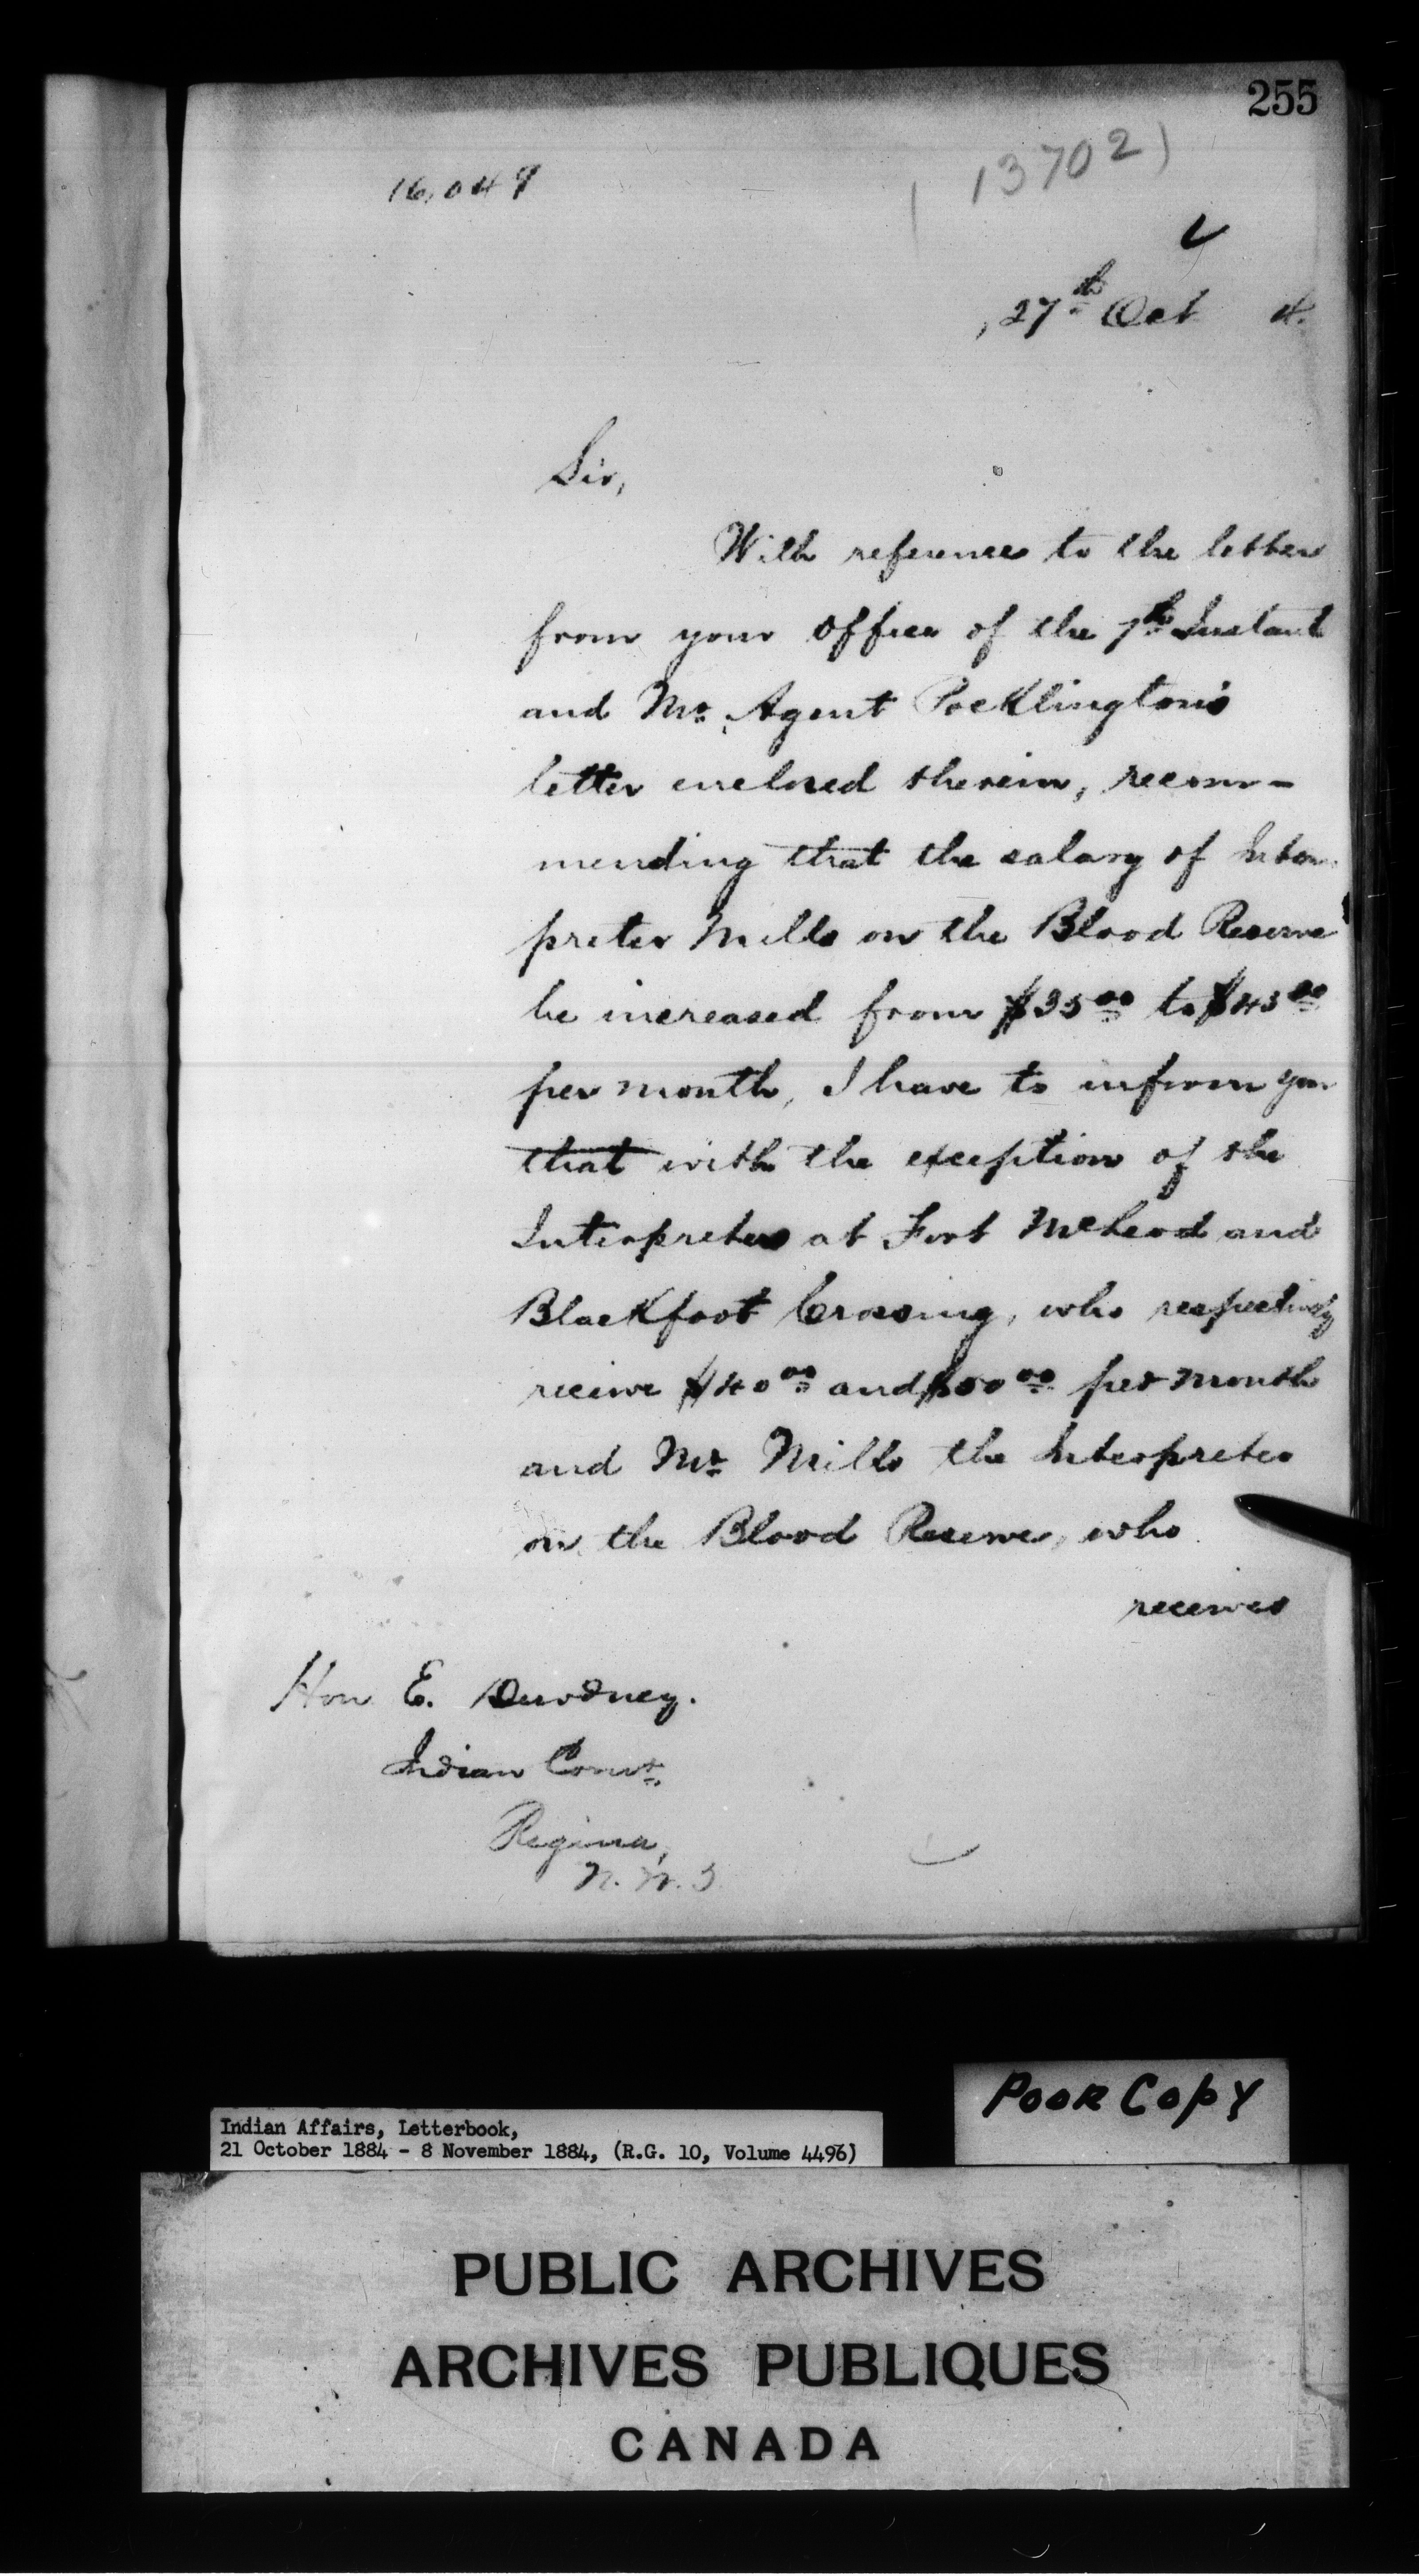 255
16,049
13702
27th Oct 4.
Sir,
With reference to the letter
from your office of the 7th Instant
and Mr. Agent Pocklington's
letter enclosed therein, recom-
mending that the salary of Inter-
preter Mills on the Blood Reserve
be increased from $35.00 to $45.00
per month, I have to inform you
that with the exception of the
Interpreters at Fort McLeod and
Blackfoot Crossing, who respectively
receive $40.00 and $50.00 per month
and Mr. Mills the Interpreter
on the Blood Reserve, who
receives
Hon E. Dewdney.
Indian Comr.
Regina,
N.W.T.
Poor Copy
Indian Affairs, Letterbook,
21 October 1884 - 8 November 1884, (R.G. 10, Volume 4496)
PUBLIC ARCHIVES
ARCHIVES PUBLIQUES
CANADA